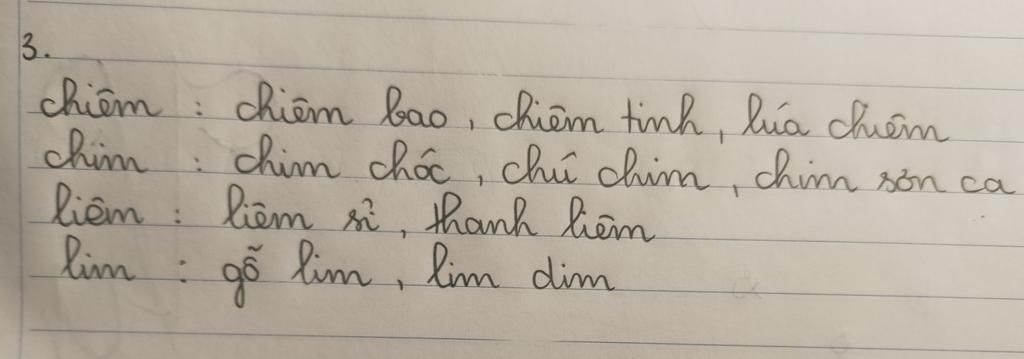 3.
chiêm : chiêm bao, chiêm tinh, lúa chiêm
chim : chim chóc, chú chim, chim sơn ca
liêm : liêm sỉ, thanh liêm
lim : gỗ lim, lim dim